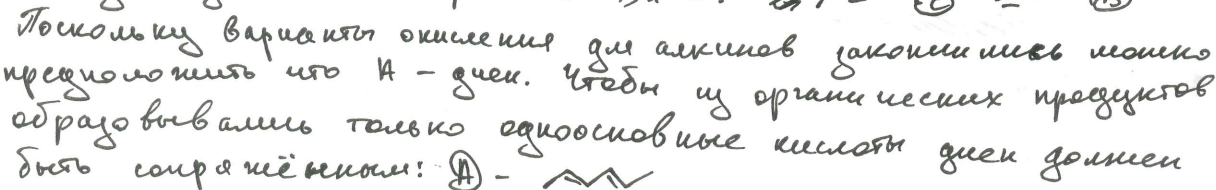 Поскольку варианты окисления для алкинов закончились можно
предположить что А – диен. Чтобы из органических продуктов
образовывались только одноосновные кислоты диен должен
быть сопряжённым: А –